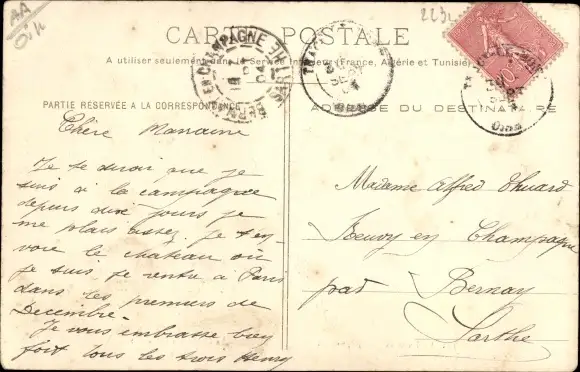 AA
223
CARTE POSTALE
A utiliser seulement dans le Service Intérieur (France, Algérie et Tunisie)
PARTIE RÉSERVÉE A LA CORRESPONDANCE
Chère Marraine
Je te dirai que je
suis à la campagne
depuis dix jours je
me plais assez. Je t'en-
voie le château où
je suis je rentre à Paris
dans les premiers de
Decembre
Je vous embrasse bien
fort tous les trois Henry
ADRESSE DU DESTINATAIRE
Madame Alfred Huard
en Champagne
par Bernay
Sarthe
EN CHAMPAGNE
SARTHE
OISE
10